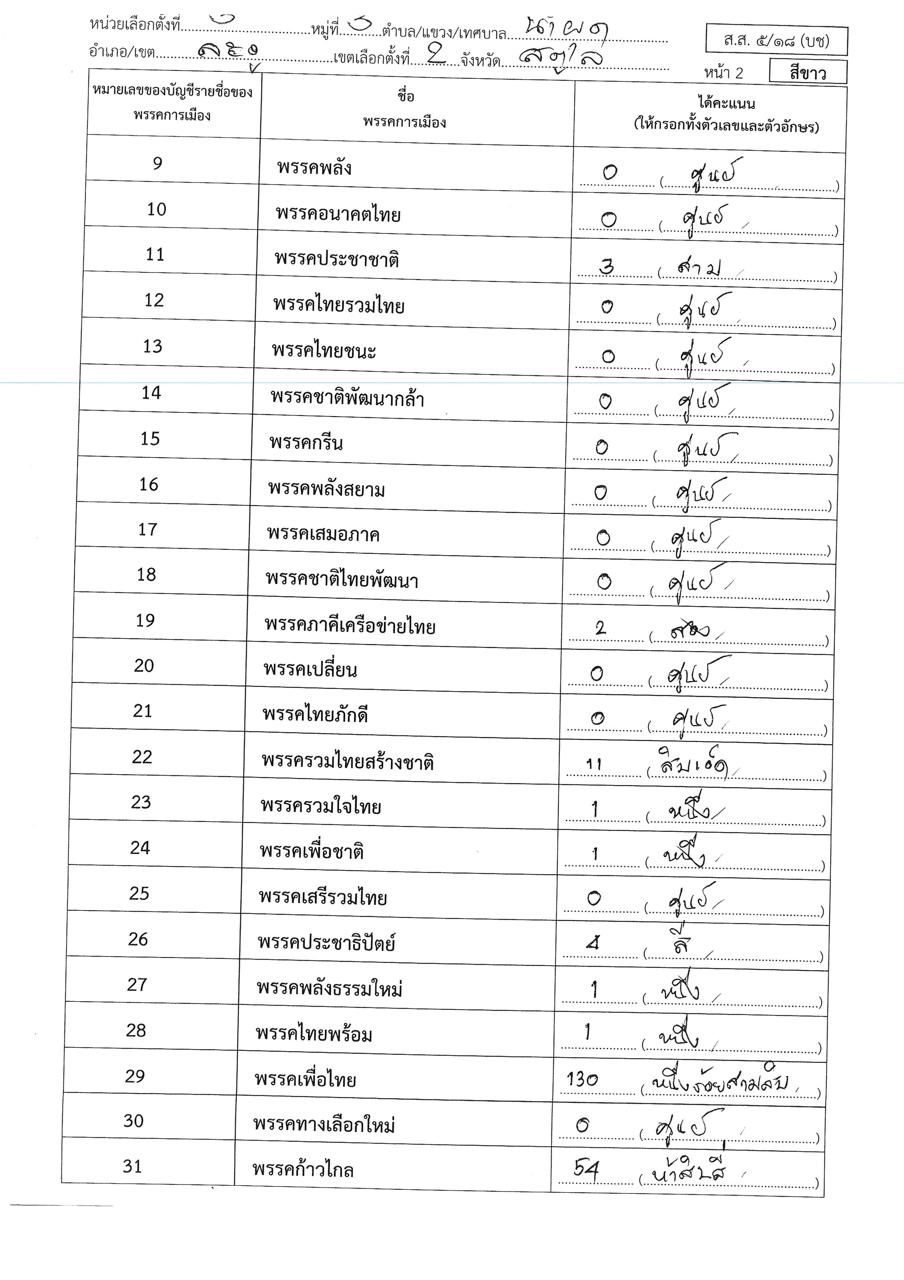 หน่วยเลือกตั้งที่ 3 หมู่ที่ 3 ตำบล/แขวง/เทศบาล น้ำผุด
ส.ส. ๕/๑๘ (บช)
อำเภอ/เขต ละงู เขตเลือกตั้งที่ 2 จังหวัด สตูล
หน้า 2 สีขาว
หมายเลขของบัญชีรายชื่อของพรรคการเมือง ชื่อพรรคการเมือง ได้คะแนน (ให้กรอกทั้งตัวเลขและตัวอักษร)
9 พรรคพลัง 0 (ศูนย์)
10 พรรคอนาคตไทย 0 (ศูนย์)
11 พรรคประชาชาติ 3 (สาม)
12 พรรคไทยรวมไทย 0 (ศูนย์)
13 พรรคไทยชนะ 0 (ศูนย์)
14 พรรคชาติพัฒนากล้า 0 (ศูนย์)
15 พรรคกรีน 0 (ศูนย์)
16 พรรคพลังสยาม 0 (ศูนย์)
17 พรรคเสมอภาค 0 (ศูนย์)
18 พรรคชาติไทยพัฒนา 0 (ศูนย์)
19 พรรคภาคีเครือข่ายไทย 2 (สอง)
20 พรรคเปลี่ยน 0 (ศูนย์)
21 พรรคไทยภักดี 0 (ศูนย์)
22 พรรครวมไทยสร้างชาติ 11 (สิบเอ็ด)
23 พรรครวมใจไทย 1 (หนึ่ง)
24 พรรคเพื่อชาติ 1 (หนึ่ง)
25 พรรคเสรีรวมไทย 0 (ศูนย์)
26 พรรคประชาธิปัตย์ 4 (สี่)
27 พรรคพลังธรรมใหม่ 1 (หนึ่ง)
28 พรรคไทยพร้อม 1 (หนึ่ง)
29 พรรคเพื่อไทย 130 (หนึ่งร้อยสามสิบ)
30 พรรคทางเลือกใหม่ 0 (ศูนย์)
31 พรรคก้าวไกล 54 (ห้าสิบสี่)